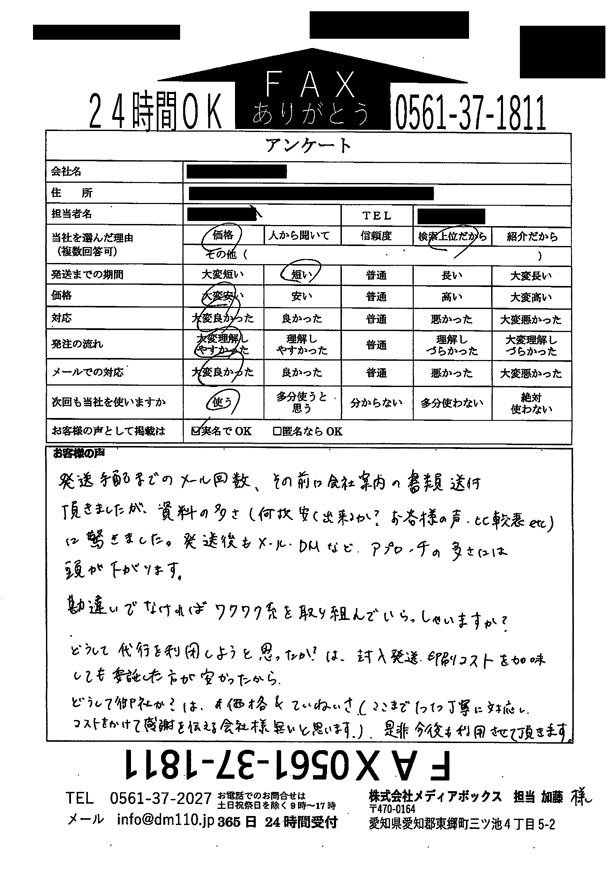 FAX
ありがとう
24時間OK
0561-37-1811
アンケート
会社名
住 所
担当者名 TEL
当社を選んだ理由
(複数回答可)
価格 人から聞いて 信頼度 検索上位だから 紹介だから
その他 ( )
発送までの期間 大変短い 短い 普通 長い 大変長い
価格 大変安い 安い 普通 高い 大変高い
対応 大変良かった 良かった 普通 悪かった 大変悪かった
発注の流れ 大変理解しやすかった 理解しやすかった 普通 理解しづらかった 大変理解しづらかった
メールでの対応 大変良かった 良かった 普通 悪かった 大変悪かった
次回も当社を使いますか 使う 多分使うと思う 分からない 多分使わない 絶対使わない
お客様の声として掲載は ☑実名でOK □匿名ならOK
お客様の声
発送手配までのメール回数、その前に会社案内の書類送付
頂きましたが、資料の多さ(何故安く出来るか?お客様の声・比較表etc)
に驚きました。発送後もメール・DMなど、アプローチの多さには
頭が下がります。
勘違いでなければワクワク系を取り組んでいらっしゃいますか?
どうして代行を利用しようと思ったか?は、封入発送・印刷コストを加味
しても委託した方が安かったから。
どうして御社か?は、価格&ていねいさ(ここまで丁寧に対応し、
コストをかけて感謝を伝える会社様無いと思います。)、是非今後も利用させて頂きます。
FAX0561-37-1811
TEL 0561-37-2027 お電話でのお問合せは
土日祝祭日を除く9時~17時
メール info@dm110.jp 365日 24時間受付
株式会社メディアボックス 担当 加藤 様
〒470-0164
愛知県愛知郡東郷町三ツ池4丁目5-2